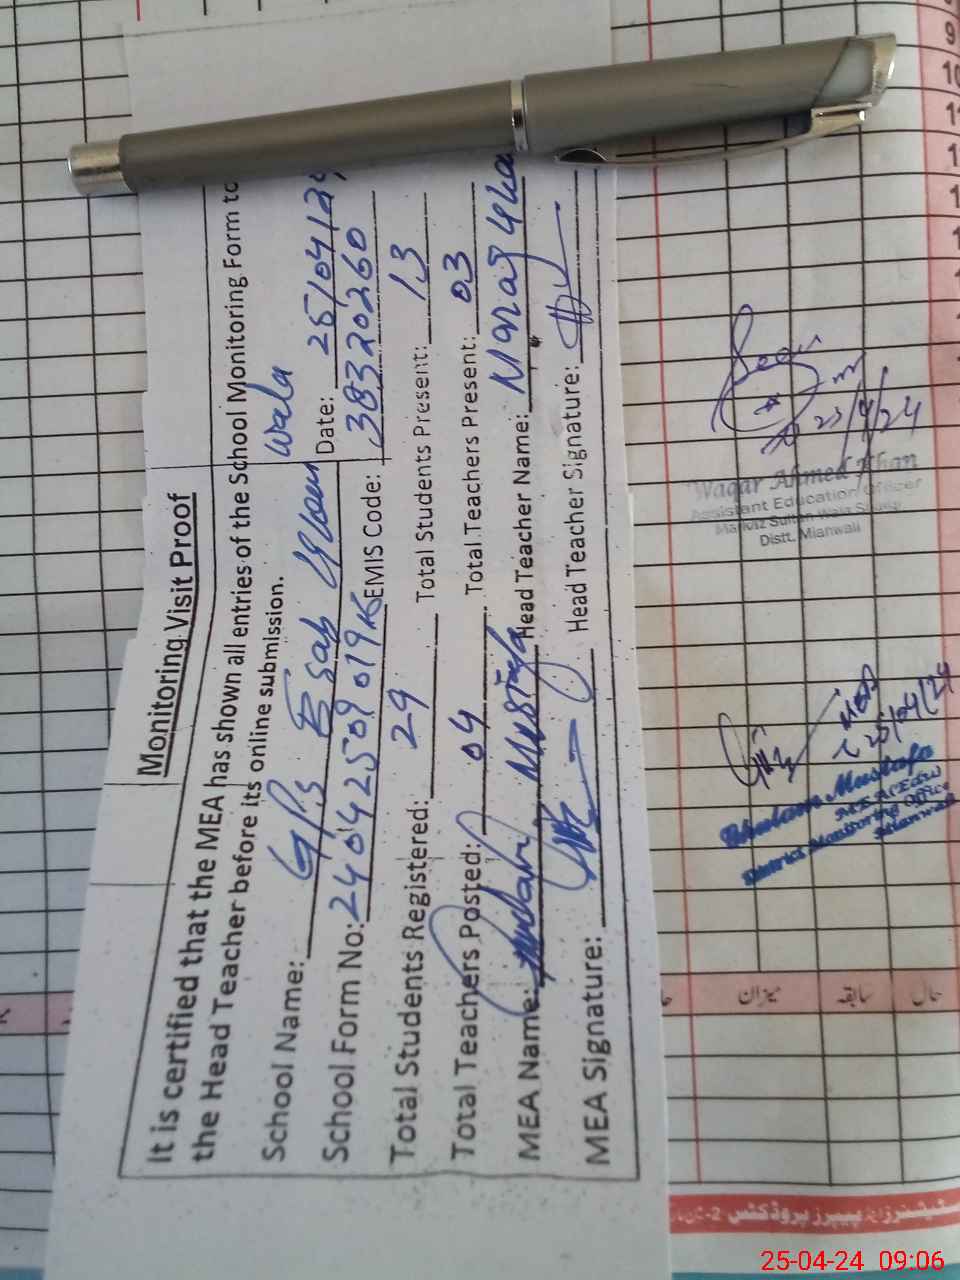 Monitoring Visit Proof
It is certified that the MEA has shown all entries of the School Monitoring Form to
the Head Teacher before its online submission.
School Name: GPS Wala
Date: 25/04/24
School Form No: 2404250901
EMIS Code: 38320260
Total Students Registered: 29
Total Students Present: 13
Total Teachers Posted: 04
Total Teachers Present: 03
MEA Name: Mustafa
Head Teacher Name:
MEA Signature:
Head Teacher Signature:
23/4/24
Waqar Ahmed Khan
Assistant Education Officer
Distt. Mianwali
MEA
25/04/24
Ghulam Mustafa
MEA
District Monitoring Office
Mianwali
میزان
سابقہ
حال
پیپرز پروڈکٹس
9
10
25-04-24 09:06